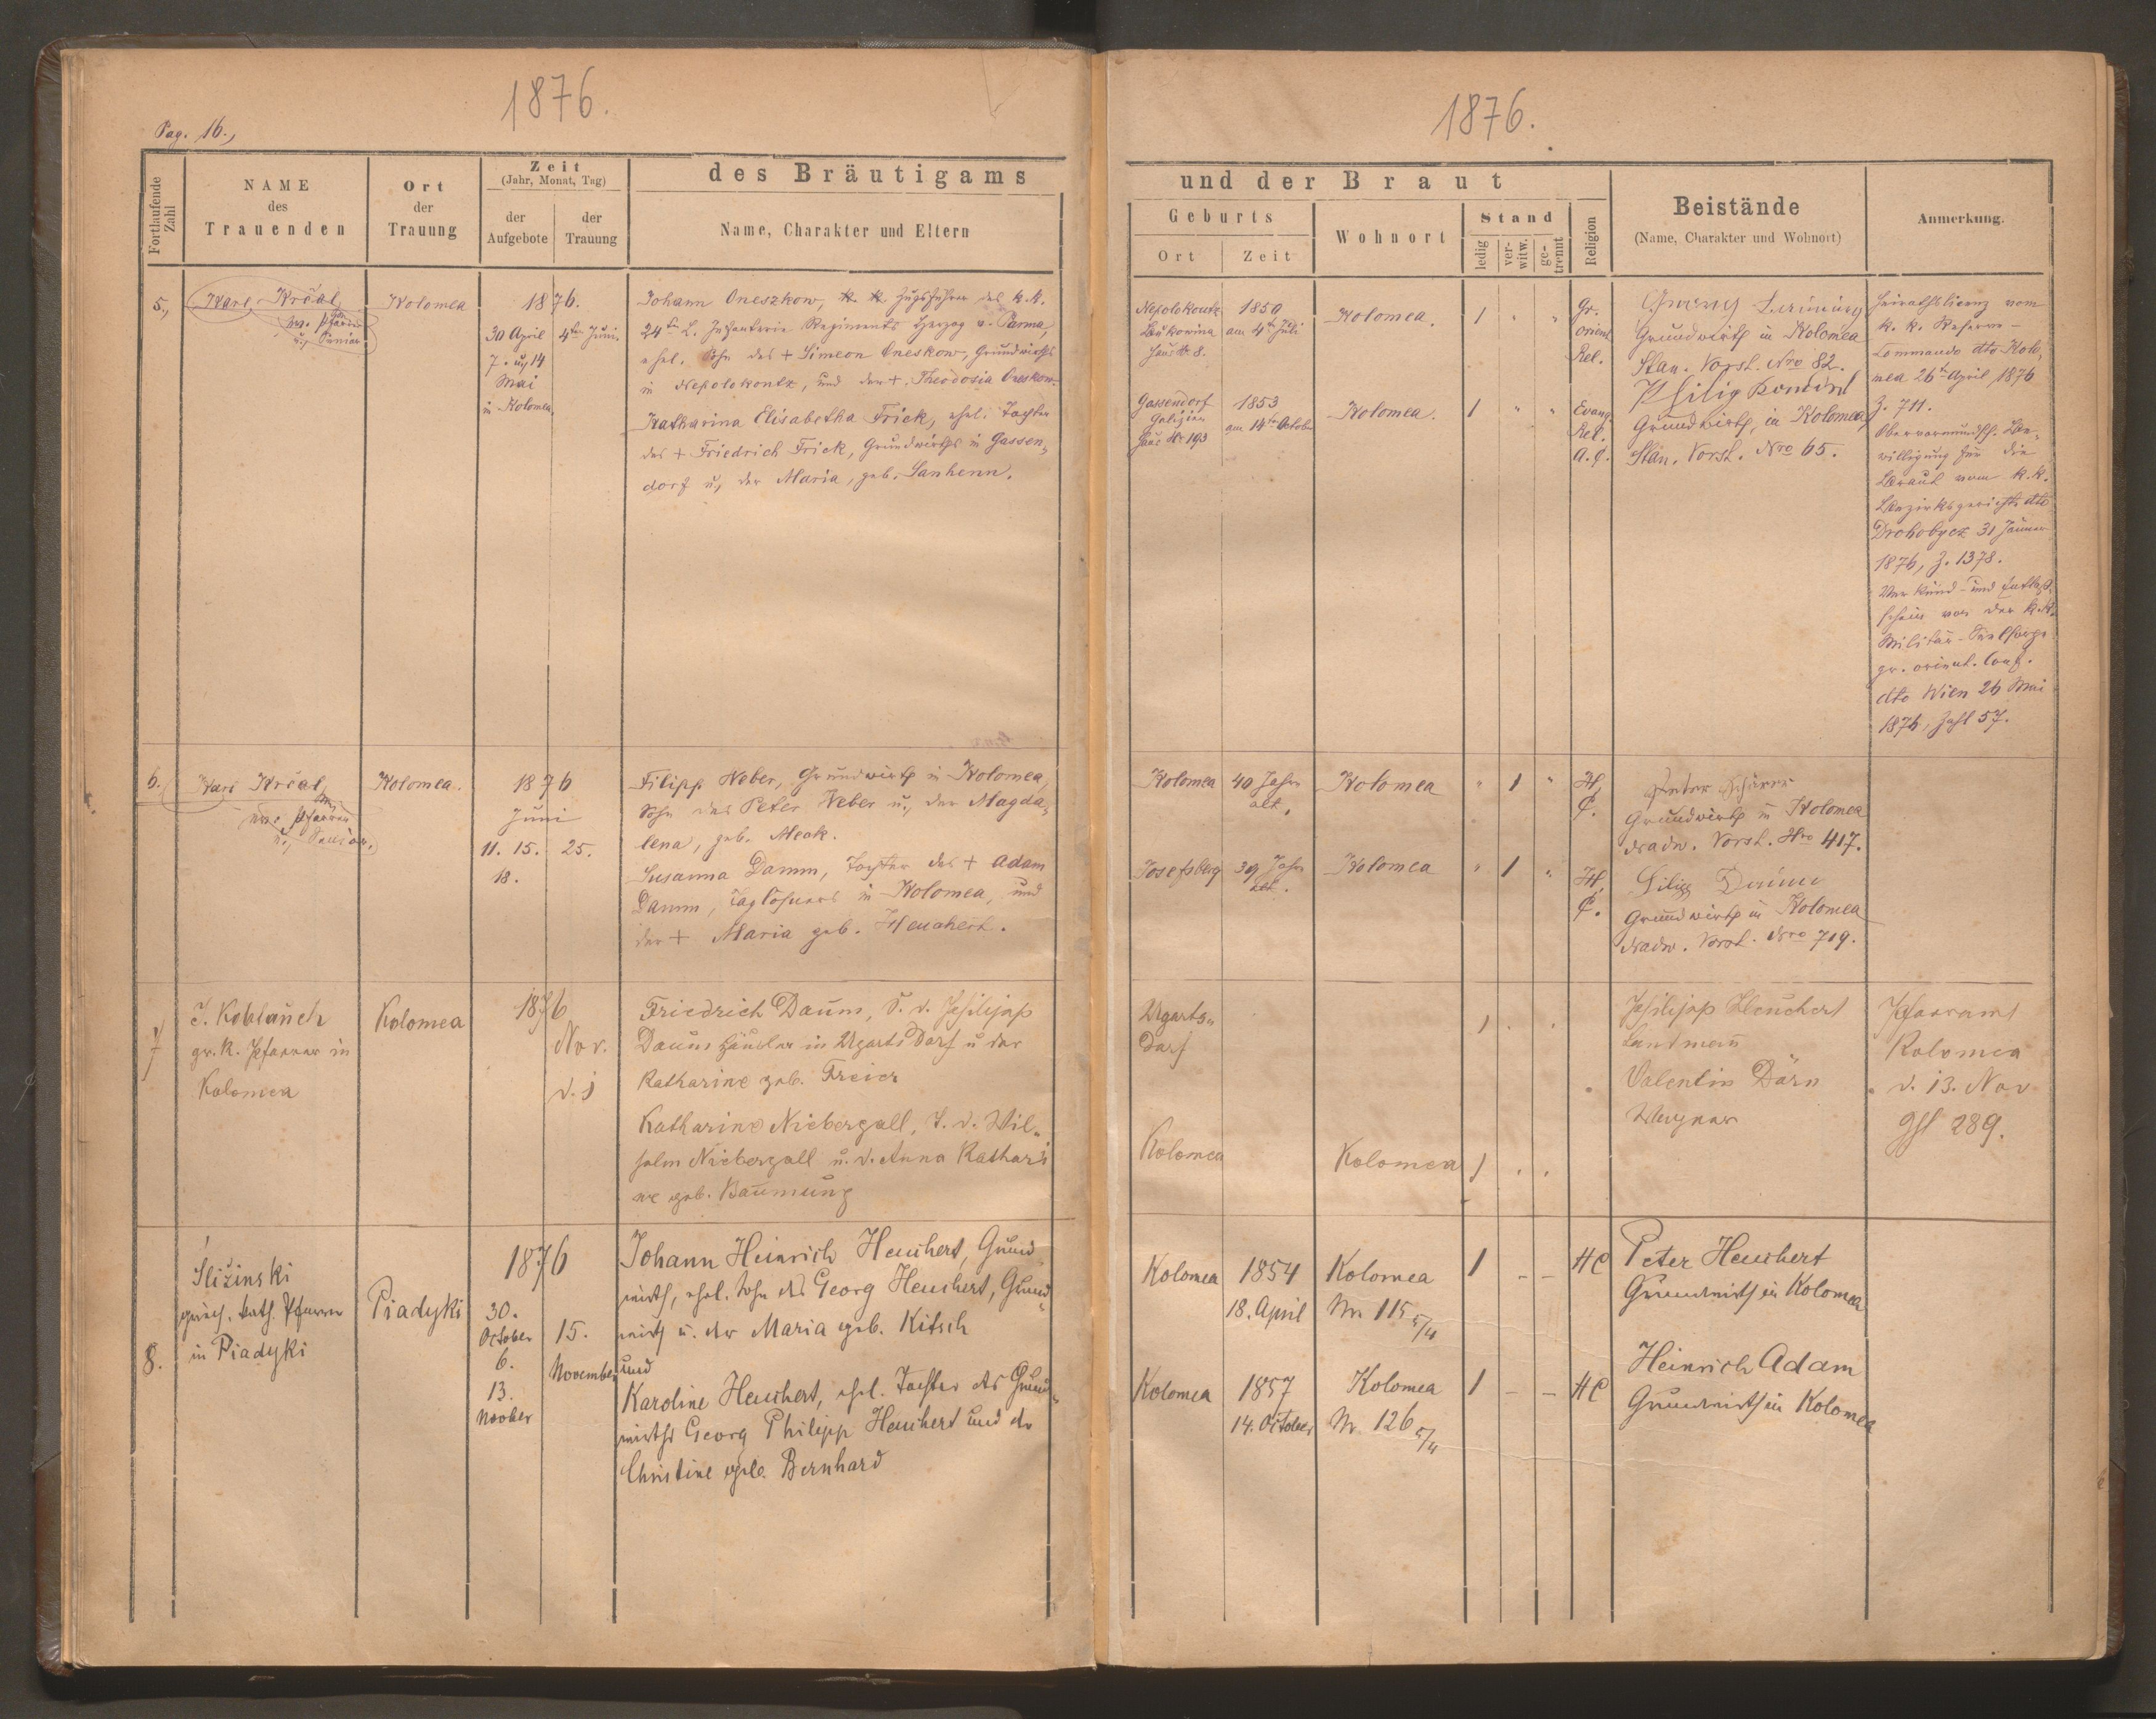 1876.
Pag. 16.,
Fortlaufende Zahl
NAME
des
Trauenden
Ort
der
Trauung
Zeit
(Jahr, Monat, Tag)
der
Aufgebote
der
Trauung
des Bräutigams
Name, Charakter und Eltern
5.,
Karl Krčal,
ev. Pfarrer
u. Senior
Kolomea
1876.
30 April
7. u. 14
Mai
in Kolomea
4ten Juni
Johann Oneszkow, k. k. Zugsführer des k. k.
24ten L. Infanterie Regiments Herzog v. Parma,
ehel. Sohn des + Simeon Oneskow, Grundwirths
in Nepolokoutz, und der +. Theodosia Oneskow.
Katharina Elisabetha Frick, ehel. Tochter
des + Friedrich Frick, Grundwirths in Gassen„
dorf u, der Maria, geb. Sanhenn.
6.
Karl Krčal,
ev. Pfarrer
u. Senior.
Kolomea.
1876
Juni
11. 15.
18.
25.
Filipp Weber, Grundwirth in Kolomea,
Sohn des Peter Weber u., der Magda„
lena, geb. Meok.
Susanna Damm, Tochter des + Adam
Damm, Taglöhners in Kolomea, und
der + Maria geb. Heuchert.
7
gr. k. Pfarrer in
Kolomea
Kolomea
1876
Nov.
Friedrich Daum, S. d. Philipp
Daum Häusler in Ugartsdorf u der
Katharine geb. Freier
Katharine Niebergall, T. d. Wil„
helm Niebergall u. d. Anna Kathari
ne geb. Baumung
8.
Sližinski
griech. kath. Pfarrer
in Piadyki
Piadyki
1876
30.
October
6.
13.
Novber
15.
November
Johann Heinrich Heuchert, Grund„
wirth, ehel. Sohn des Georg Heuchert, Grund„
wirth u. der Maria geb. Kitsch
und
Karoline Heuchert, ehel. Tochter des Grund„
wirths Georg Philipp Heuchert und der
Christine geb. Bernhard
1876.
und der Braut
Geburts
Ort
Zeit
Wohnort
Stand
ledig
ver-
witw.
ge-
trennt
Religion
Beistände
(Name, Charakter und Wohnort)
Anmerkung.
Nepolokoutz
Bukowina
Haus № 8.
1850
am 4ten Juli
Kolomea.
1 " "
Gr.
orient.
Rel.
Grundwirth in Kolomea
Stan. Vorst. Nro 82.
Gassendorf
Galizien
Haus № 193
1853
am 14ten October
Kolomea.
1 " "
Evang.
Rel.
A. C.
Philip
Grundwirth, in Kolomea,
Stan. Vorst. Nro 65.
Heirathslicenz vom
k. k. Reserve-
Commando dto Kolo„
mea 26ten April 1876
Z. 711.
Obervormundsch. Bew„
willigung für die
Braut vom k. k.
Bezirksgerichte dto
Drohobycz 31 Jänner
1876, Z. 1378.
Verkünd- und Entlaß
schein von der k. k.
Militär-Seelsorge
gr. orient. Conf.
dto Wien 26 Mai
1876, Zahl 57.
Kolomea
40 Jahre
alt,
Kolomea
" 1 "
H,
C.
Peter
Grundwirth in Kolomea
Nadw. Vorst. Nro 417.
Josefsberg
39 Jahre
alt.
Kolomea
" 1 "
H,
C.
Filipp
Grundwirth in Kolomea
Nadw. Vorst. Nro 719.
Ugarts„
dorf
1 . .
Philipp Heuchert
Landmann
Valentin Dörn
Wagner
Pfarramt
Kolomea
d. 13. Nov
289.
Kolomea
Kolomea
1 . .
Kolomea
1854
18. April
Kolomea
Nr. 115 5/4
1 - -
HC
Peter Heuchert
Grundwirth in Kolomea
Kolomea
1857
14. October
Kolomea
Nr. 126 5/4
1 - -
HC
Heinrich Adam
Grundwirth in Kolomea